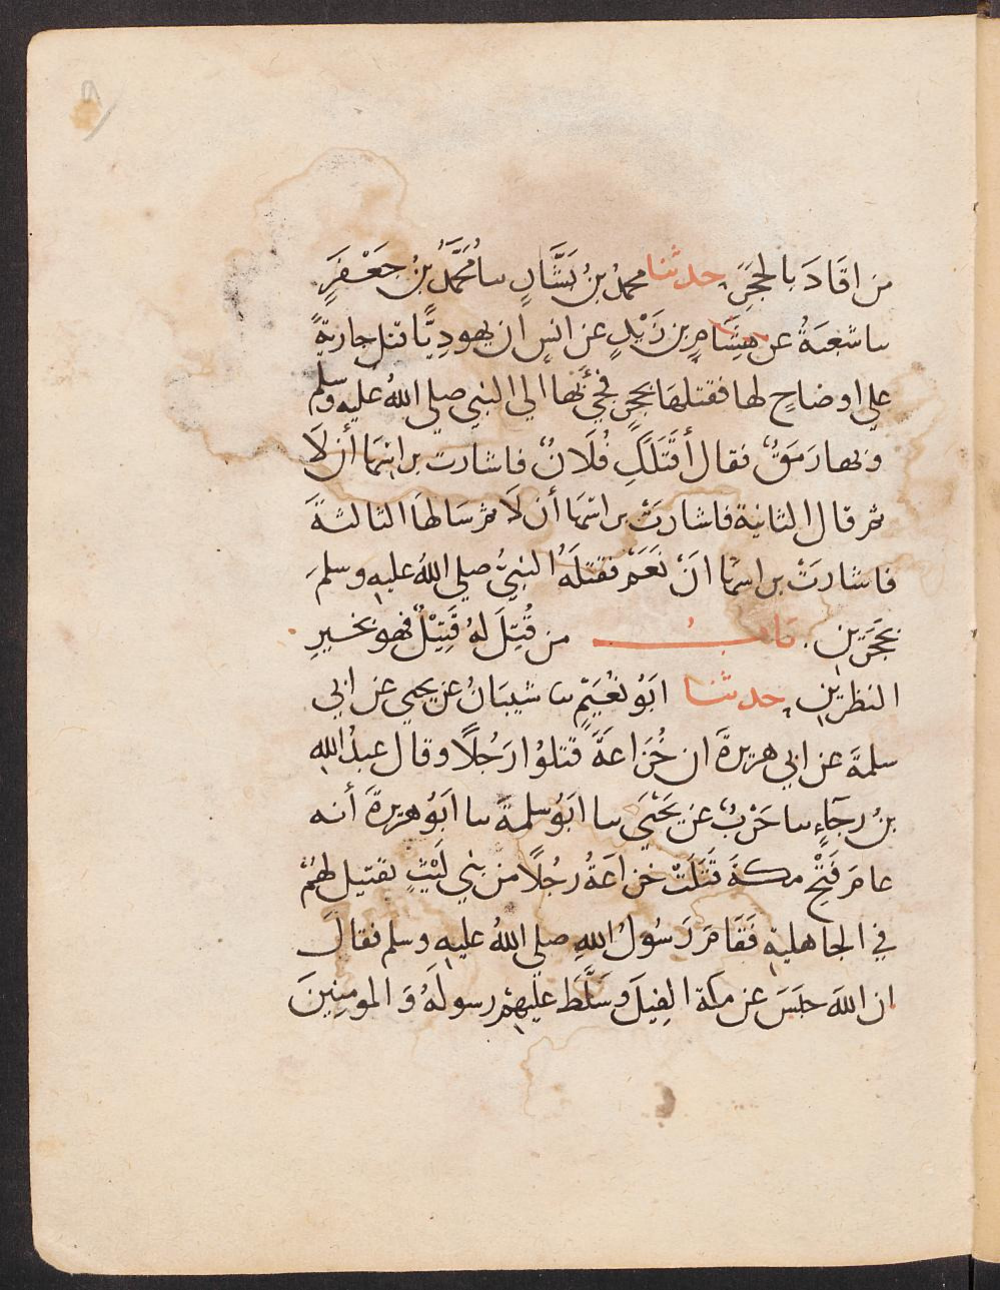 من اقَادَ بالحجَرِ حدثنا محمدُ بنُ بَشَّارٍ سا مُحَمَّدُ بنُ جَعْفَرٍ
سا شعبَةُ عن هِشَامِ بنِ زَيْدٍ عن انسٍ ان يهوديًّا قتل جاريَةً
على اوضاحٍ لها فقتلهَا بحجرٍ فجِيْءَ بها الي النبي صلى اللهُ عليه وسلم
وبها رَمَقٌ فقال أقَتَلَكِ فُلَانٌ فاشارت براسِهَا أن لَا
ثم قال الثانية فاشارتْ براسِهَا أن لَا ثم سَالهَا الثالثةَ
فاشارَتْ براسِهَا انْ نَعَمْ فقتلَهُ النبيُّ صلي اللهُ عليهِ وسلمَ
بحَجَرَينِ بَابُ من قُتِلَ لهُ قَتِيْلٌ فهو بخيرِ
النظرينِ حدثنا ابَوُ نُعَيْمٍ سا شيبَانُ عن يحيى عن ابي
سلمةَ عن ابي هريرةَ ان خُزَاعَةَ قتلوُا رَجُلًا وقال عبدُ اللهِ
بنُ رجآءٍ سا حَرْبٌ عن يَحْيَى سا ابَوُ سلمةَ سا ابَوُ هريرةَ أنه
عامَ فَتْحِ مكةَ قَتَلَتْ خزاعَةُ رجُلًا من بني لَيْثٍ بقتيل لهمْ
في الجاهليةِ فَقَامَ رَسُولُ اللهِ صلي اللهُ عليهِ وسلم فقالَ
ان اللهَ حَبَسَ عن مكة الفِيلَ وسَلَّطَ عليهِمْ رسولَهُ وَ المومنِينَ